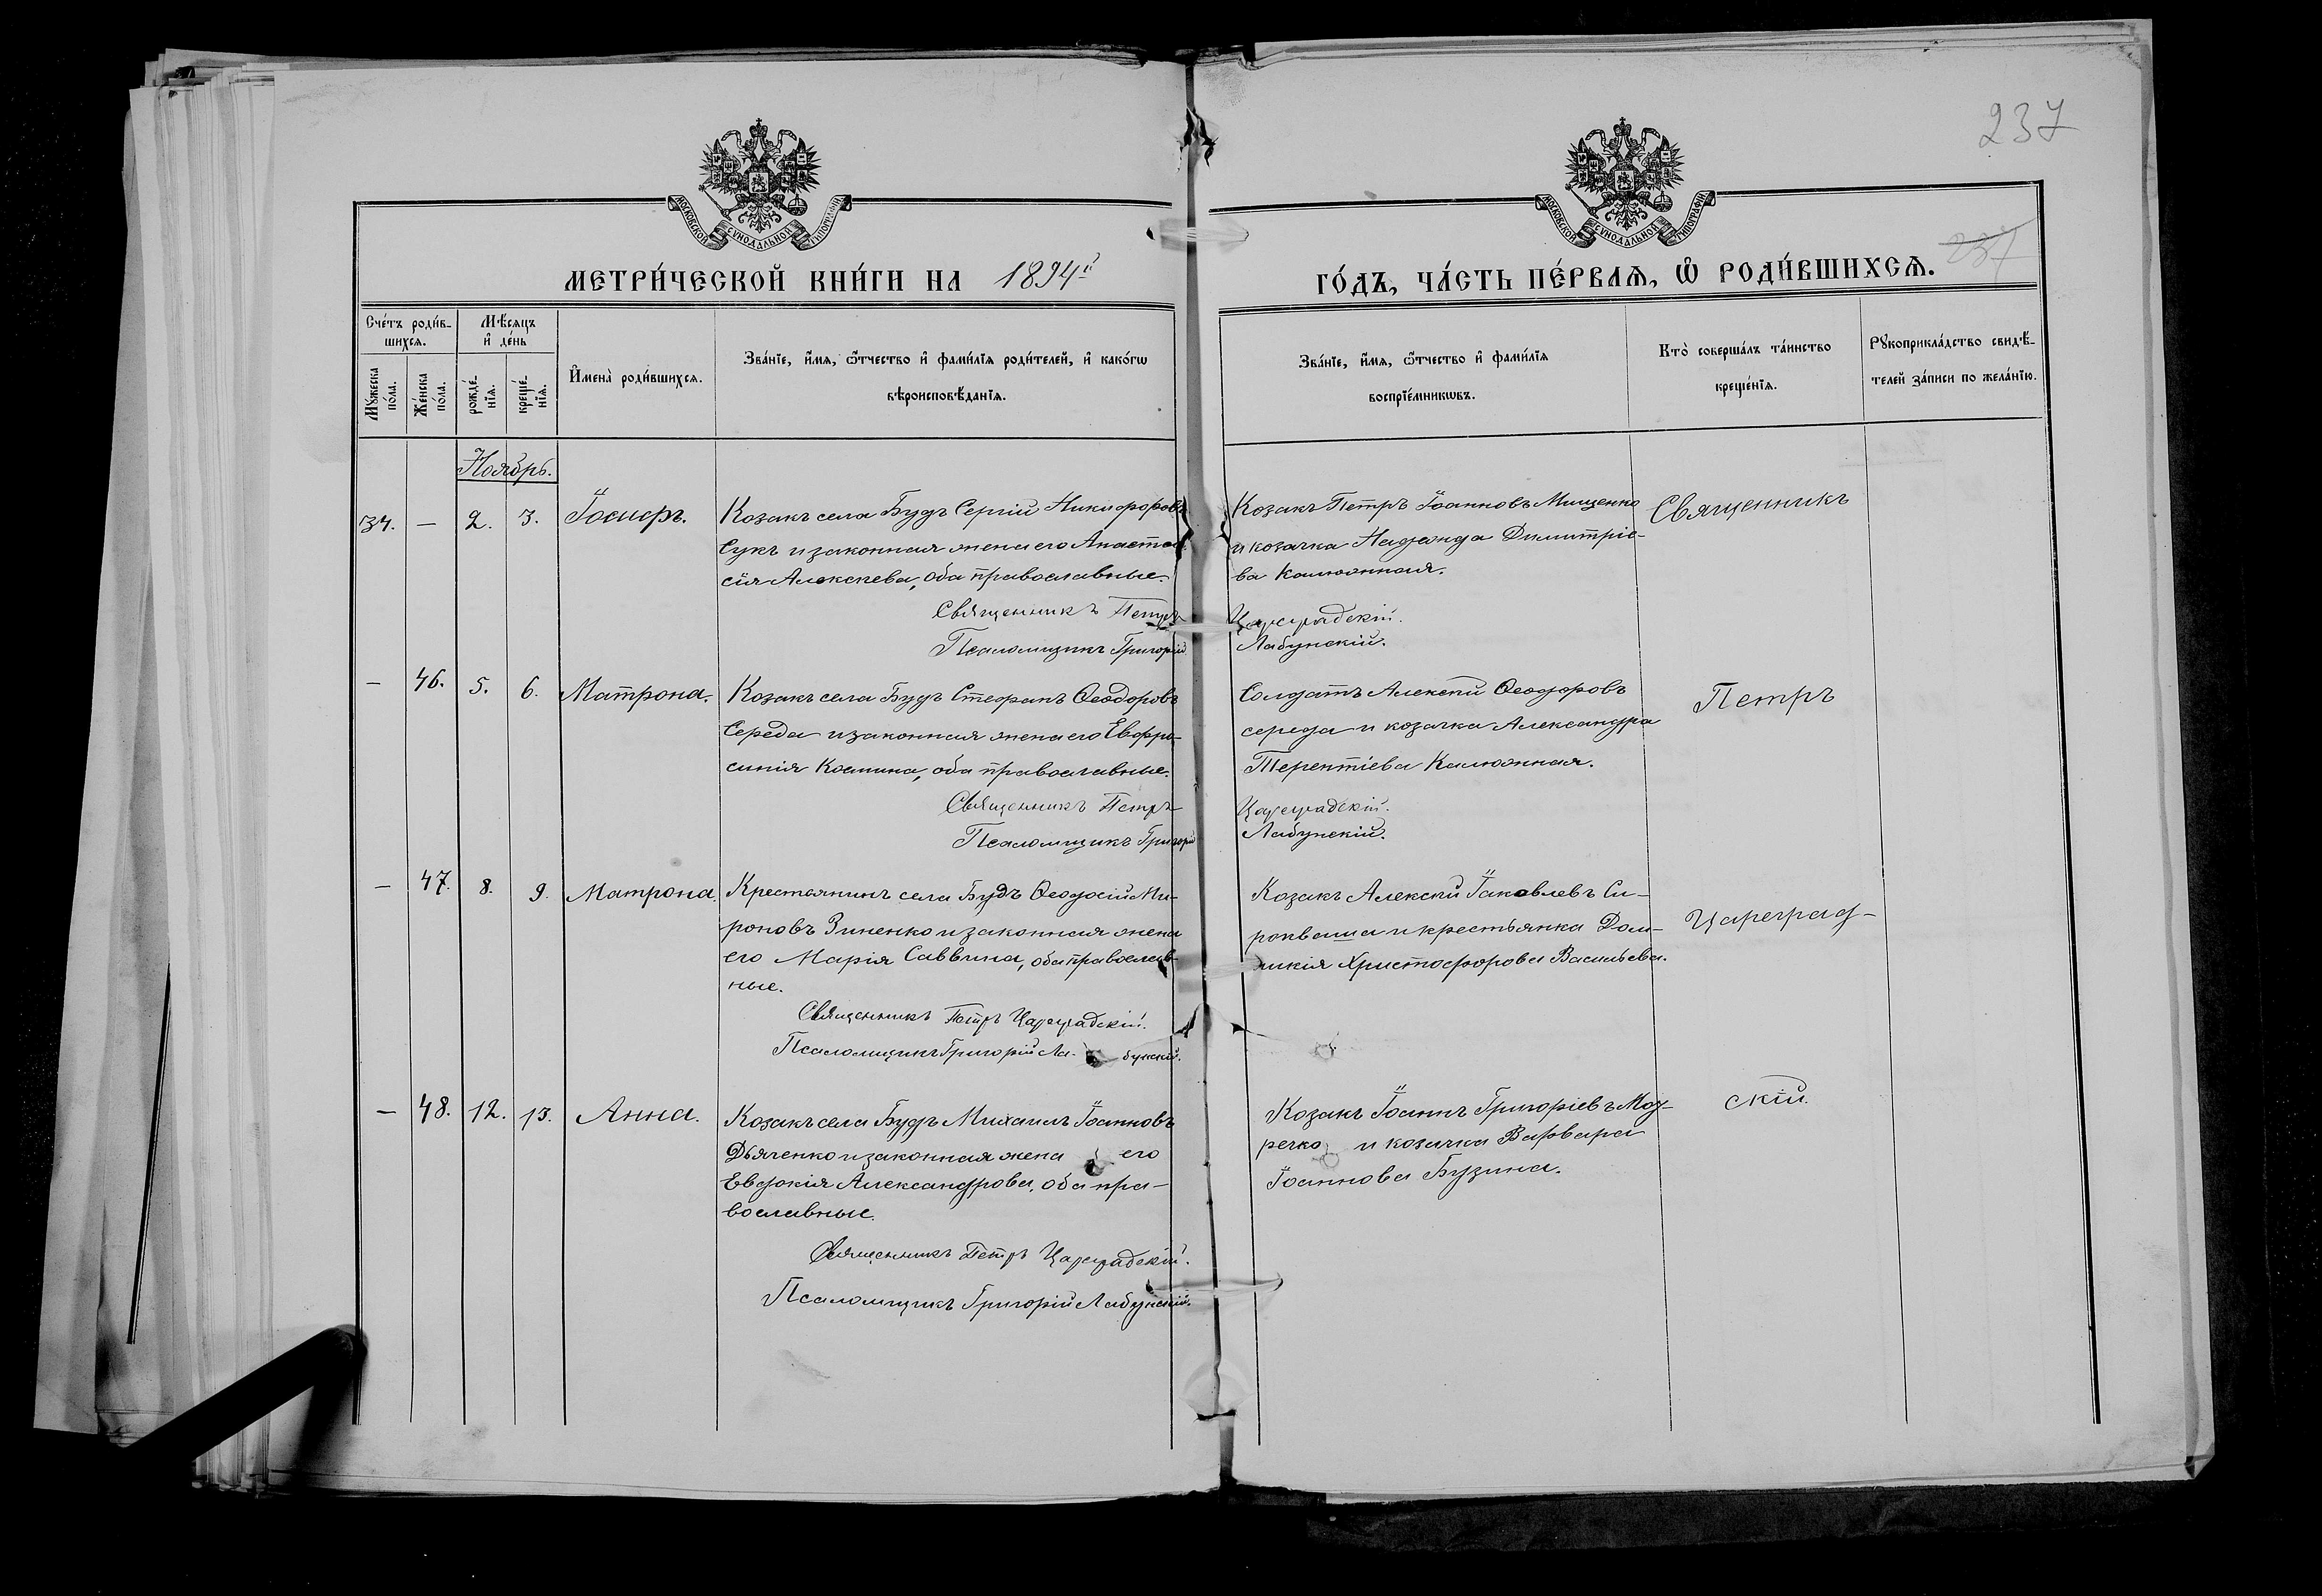 237
МОСКОВСКОЙ СѴНОДАЛЬНОЙ ТИПОГРАФІИ
МОСКОВСКОЙ СѴНОДАЛЬНОЙ ТИПОГРАФІИ
МЕТРИ́ЧЕСКОЙ КНИ́ГИ НА 1894й
ГО́ДЪ, ЧА́СТЬ ПЕ́РВАѦ, Ѽ РОДИ́ВШИХСѦ.
237
Сче́тъ роди́в-
шихсѧ.
Мѣ́сѧцъ
и҆ де́нь
Мꙋ́жеска
по́ла.
Же́нска
по́ла.
рожде́-
нїѧ.
креще́-
нїѧ.
И҆мена̀ роди́вшихсѧ.
Зва́нїе, и҆́мѧ, ѻ҆́тчество и҆ фами́лїѧ роди́телей, и҆ како́гѡ
вѣроисповѣ́данїѧ.
Зва́нїе, и҆́мѧ, ѻ҆́тчество и҆ фами́лїѧ
воспрїе́мникѡвъ.
Кто̀ соверша́лъ та́инство
креще́нїѧ.
Рꙋкоприкла́дство свидѣ́-
телей за́писи по жела́нїю.
Ноябрь.
34. — 2. 3. Іосифъ.
Козакъ села Будъ Сергій Никифоровъ
Сукъ и законная жена его Анаста-
сія Алексѣева, оба православные.
Священникъ Петръ Цареградскій.
Псаломщикъ Григорій Лабунскій.
Козакъ Петръ Іоанновъ Мищенко
и козачка Надежда Димитріе-
ва Калюжная.
Священникъ
— 46. 5. 6. Матрона.
Козакъ села Будъ Стефанъ Ѳеодоровъ
Середа и законная жена его Евфро-
синія Космина, оба православные.
Священникъ Петръ Цареградскій.
Псаломщикъ Григорій Лабунскій.
Солдатъ Алексѣй Ѳеодоровъ
середа и козачка Александра
Терентіева Калюжная.
Петръ
— 47. 8. 9. Матрона.
Крестьянинъ села Будъ Ѳеодосій Ми-
роновъ Зиненко и законная жена
его Марія Саввина, оба православ-
ные.
Священникъ Петръ Цареградскій.
Псаломщикъ Григорій Ла- бунскій.
Козакъ Алексѣй Іаковлевъ Си-
рокваша и крестьянка Дом-
никія Христофорова Васильева.
Цареград-
— 48. 12. 13. Анна.
Козакъ села Будъ Михаилъ Іоанновъ
Дьяченко и законная жена его
Евдокія Александрова, оба пра-
вославные.
Священникъ Петръ Цареградскій.
Псаломщикъ Григорій Лабунскій.
Козакъ Іоаннъ Григоріевъ
и козачка Варвара
Іоаннова Бузина.
скій.